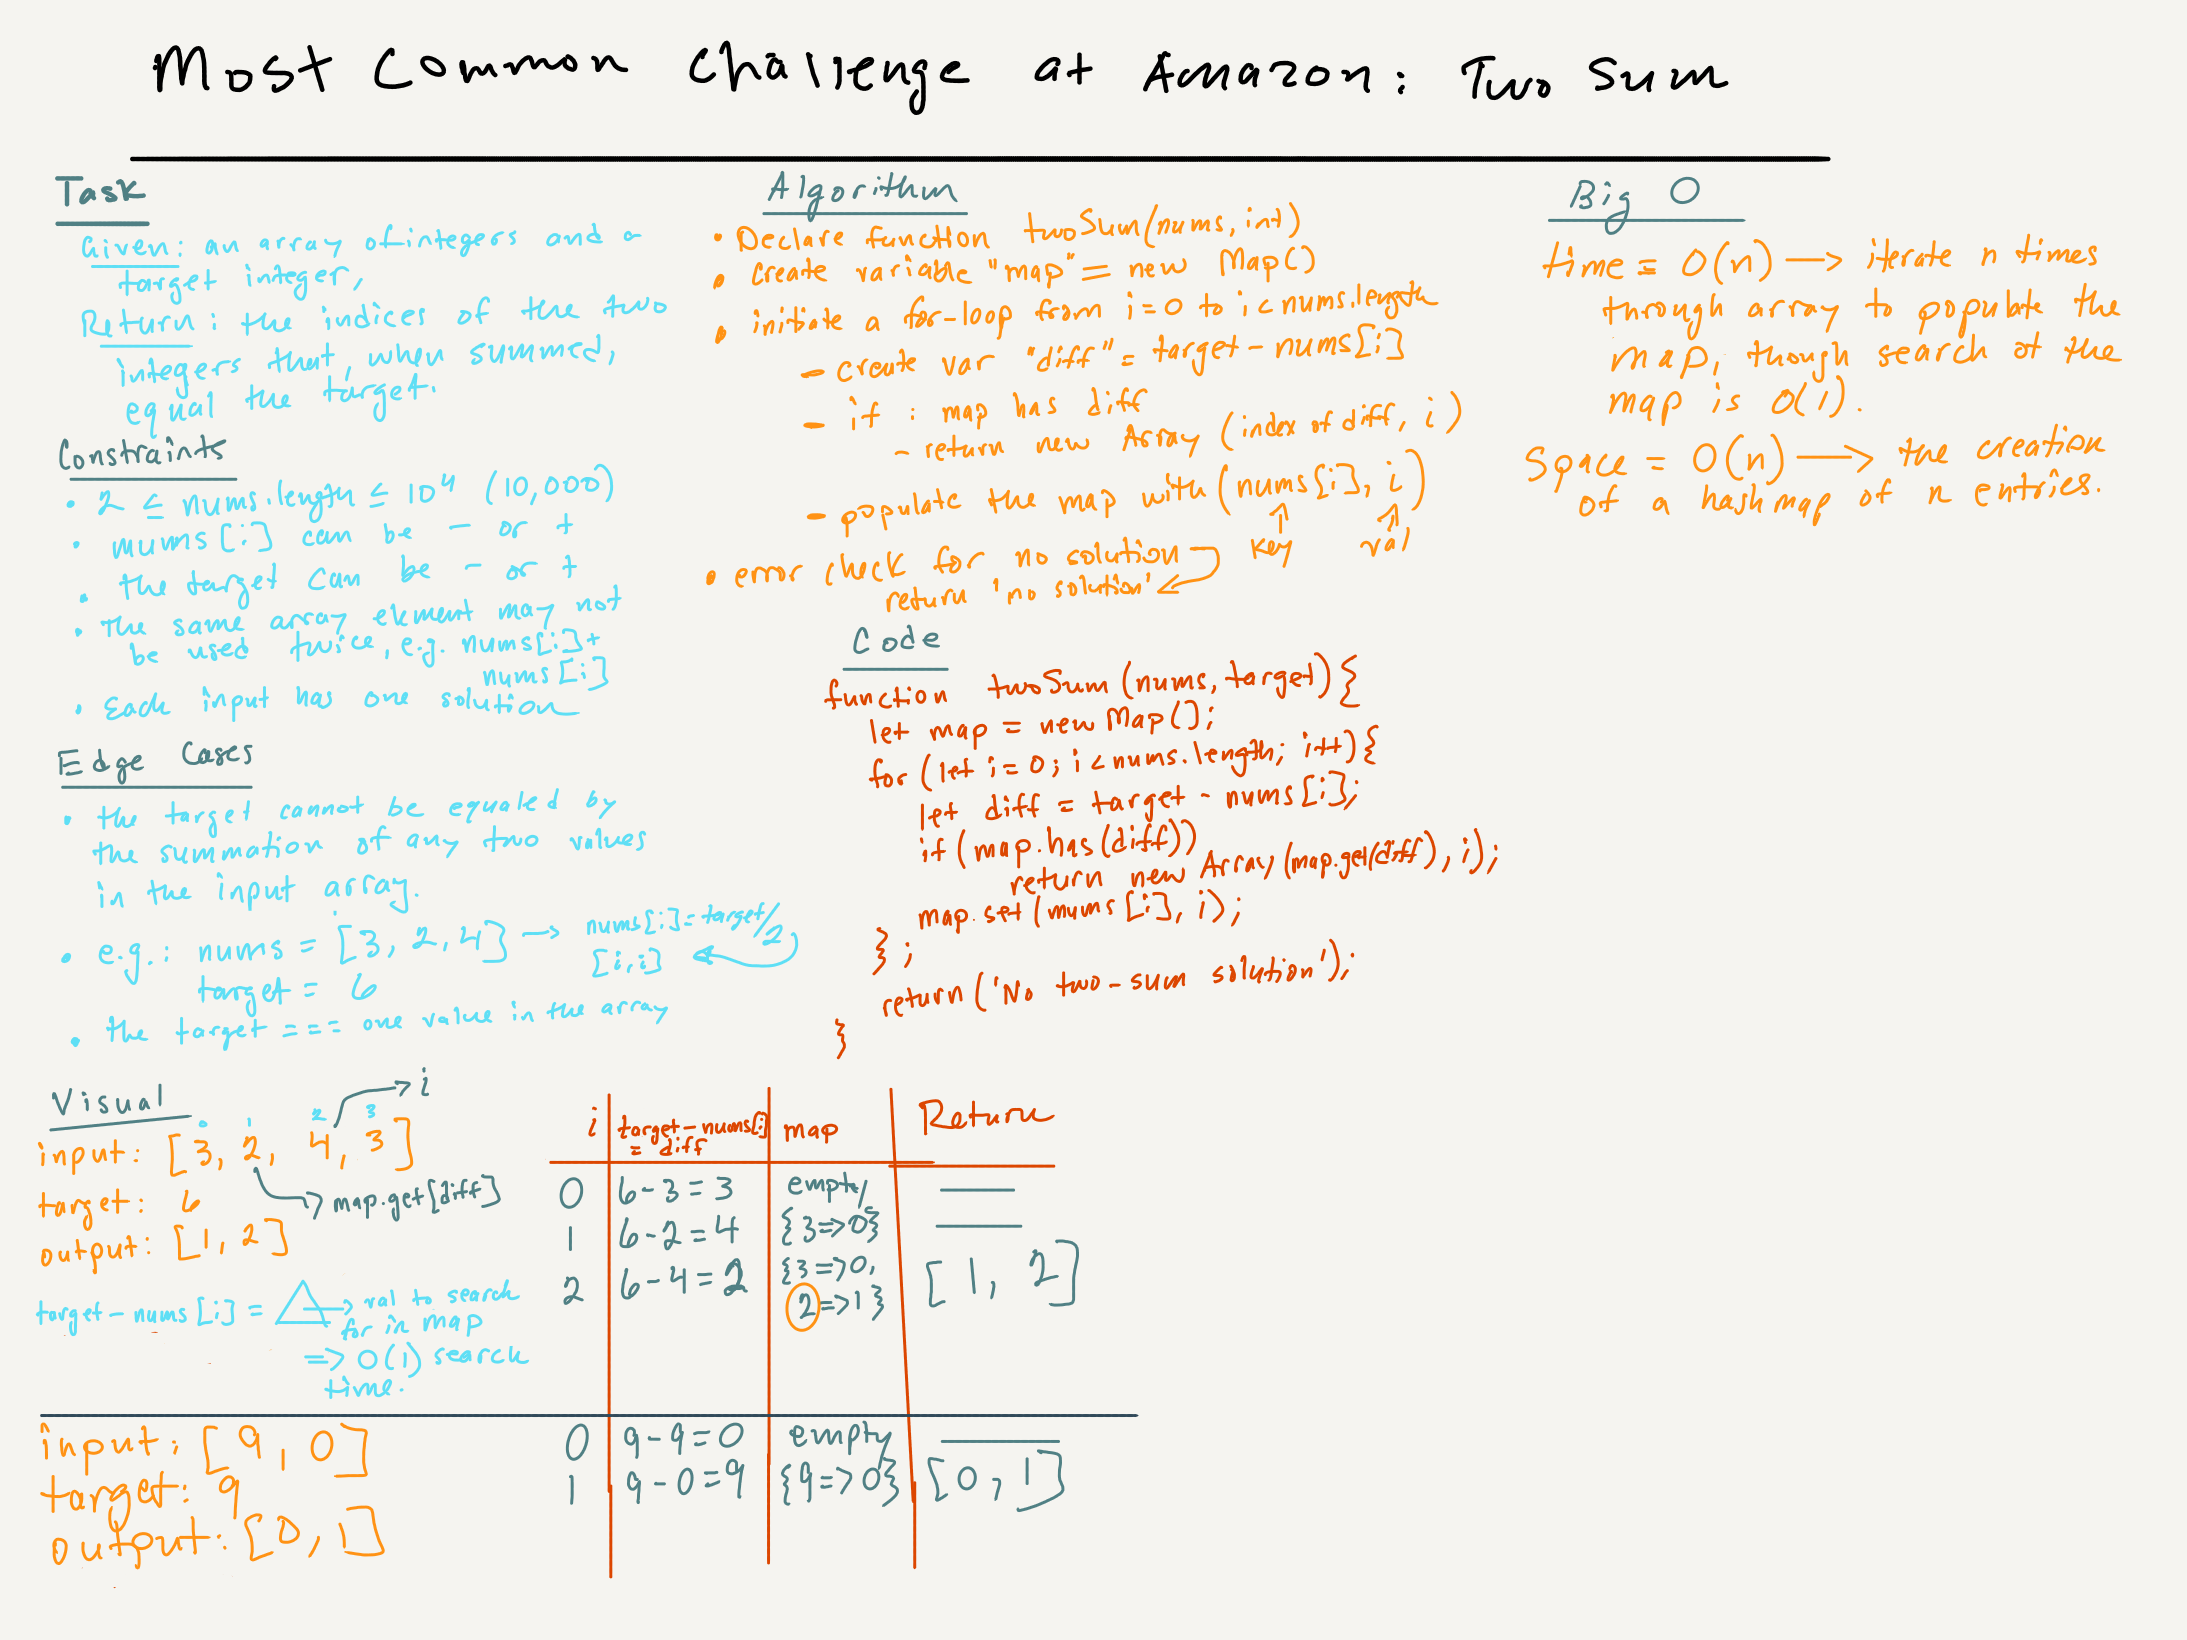 Most Common Challenge at Amazon: Two Sum
Task
Given: an array of integers and a
target integer,
Return: the indices of the two
integers that, when summed,
equal the target.
Constraints
• 2 ≤ nums.length ≤ 10⁴ (10,000)
• nums[i] can be - or +
• the target can be - or +
• The same array element may not
be used twice, e.g. nums[i]+
nums[i]
• Each input has one solution
Edge Cases
• the target cannot be equaled by
the summation of any two values
in the input array.
• e.g.: nums = [3, 2, 4] → nums[i] = target/2
[i,i]
target = 6
• the target === one value in the array
Algorithm
• Declare function twoSum(nums, int)
• create variable "map" = new Map()
• initiate a for-loop from i=0 to i<nums.length
- create var "diff" = target - nums[i]
- if : map has diff
- return new Array (index of diff, i)
- populate the map with (nums[i], i)
key val
• error check for no solution
return 'no solution'
Code
function twoSum (nums, target) {
let map = new Map();
for (let i=0; i<nums.length; i++) {
let diff = target - nums[i];
if (map.has(diff))
return new Array(map.get(diff), i);
map.set(nums[i], i);
};
return ('No two-sum solution');
}
Big O
time = O(n) → iterate n times
through array to populate the
map, though search of the
map is O(1).
Space = O(n) → the creation
of a hashmap of n entries.
Visual
→ i
0 1 2 3
input: [3, 2, 4, 3]
→ map.get[diff]
target: 6
output: [1, 2]
target - nums[i] = △ → val to search
for in map
=> O(1) search
time.
i target - nums[i] map Return
= diff
0 6-3=3 empty —
1 6-2=4 {3=>0} —
2 6-4=2 {3=>0, [1, 2]
2=>1}
input: [9, 0]
target: 9
output: [0, 1]
0 9-9=0 empty —
1 9-0=9 {9=>0} [0, 1]